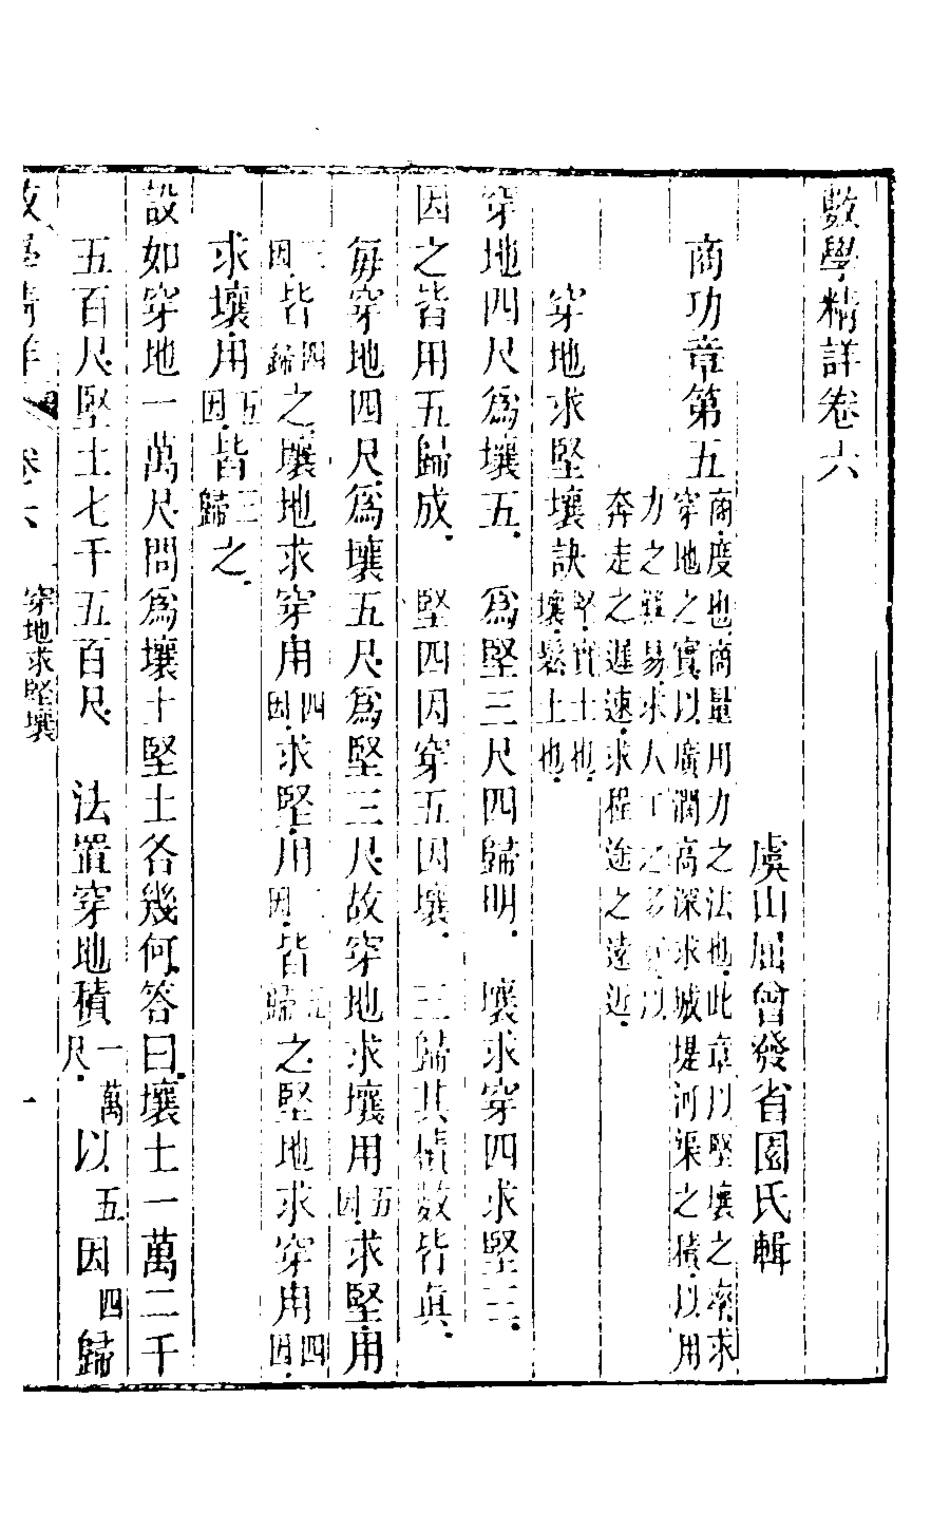 數學精詳卷六
虞山屈曾發省園氏輯
商功章第五
商度也商量用力之法也此章以堅壤之率求
穿地之實以廣濶高深求城堤河渠之積以用
力之難易求人工之多以
奔走之遲速求程途之遠近
穿地求堅壤訣
堅實土也
壤鬆土也
穿地四尺爲壤五 爲堅三尺四歸明 壤求穿四求堅三
因之皆用五歸成 堅四因穿五因壤 三歸其積數皆眞
每穿地四尺爲壤五尺爲堅三尺故穿地求壤用五因求堅用
三因皆四歸之壤地求穿用四因求堅用三因皆五歸之堅地求穿用四因
求壤用五因皆三歸之
設如穿地一萬尺問爲壤土堅土各幾何答曰壤土一萬二千
五百尺堅土七千五百尺 法置穿地積一萬尺以五因四歸
數學精詳 卷六 穿地求堅壤 一